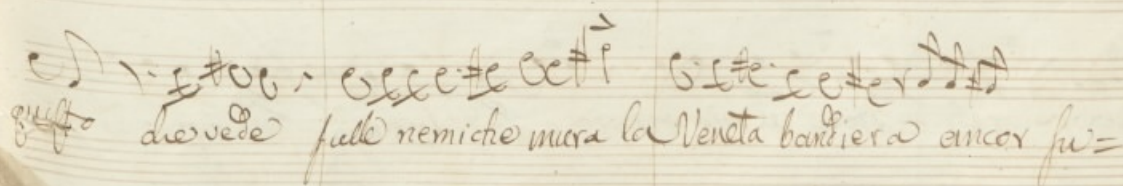 questo che vede sulle nemiche mura la Veneta bandiera ancor su=